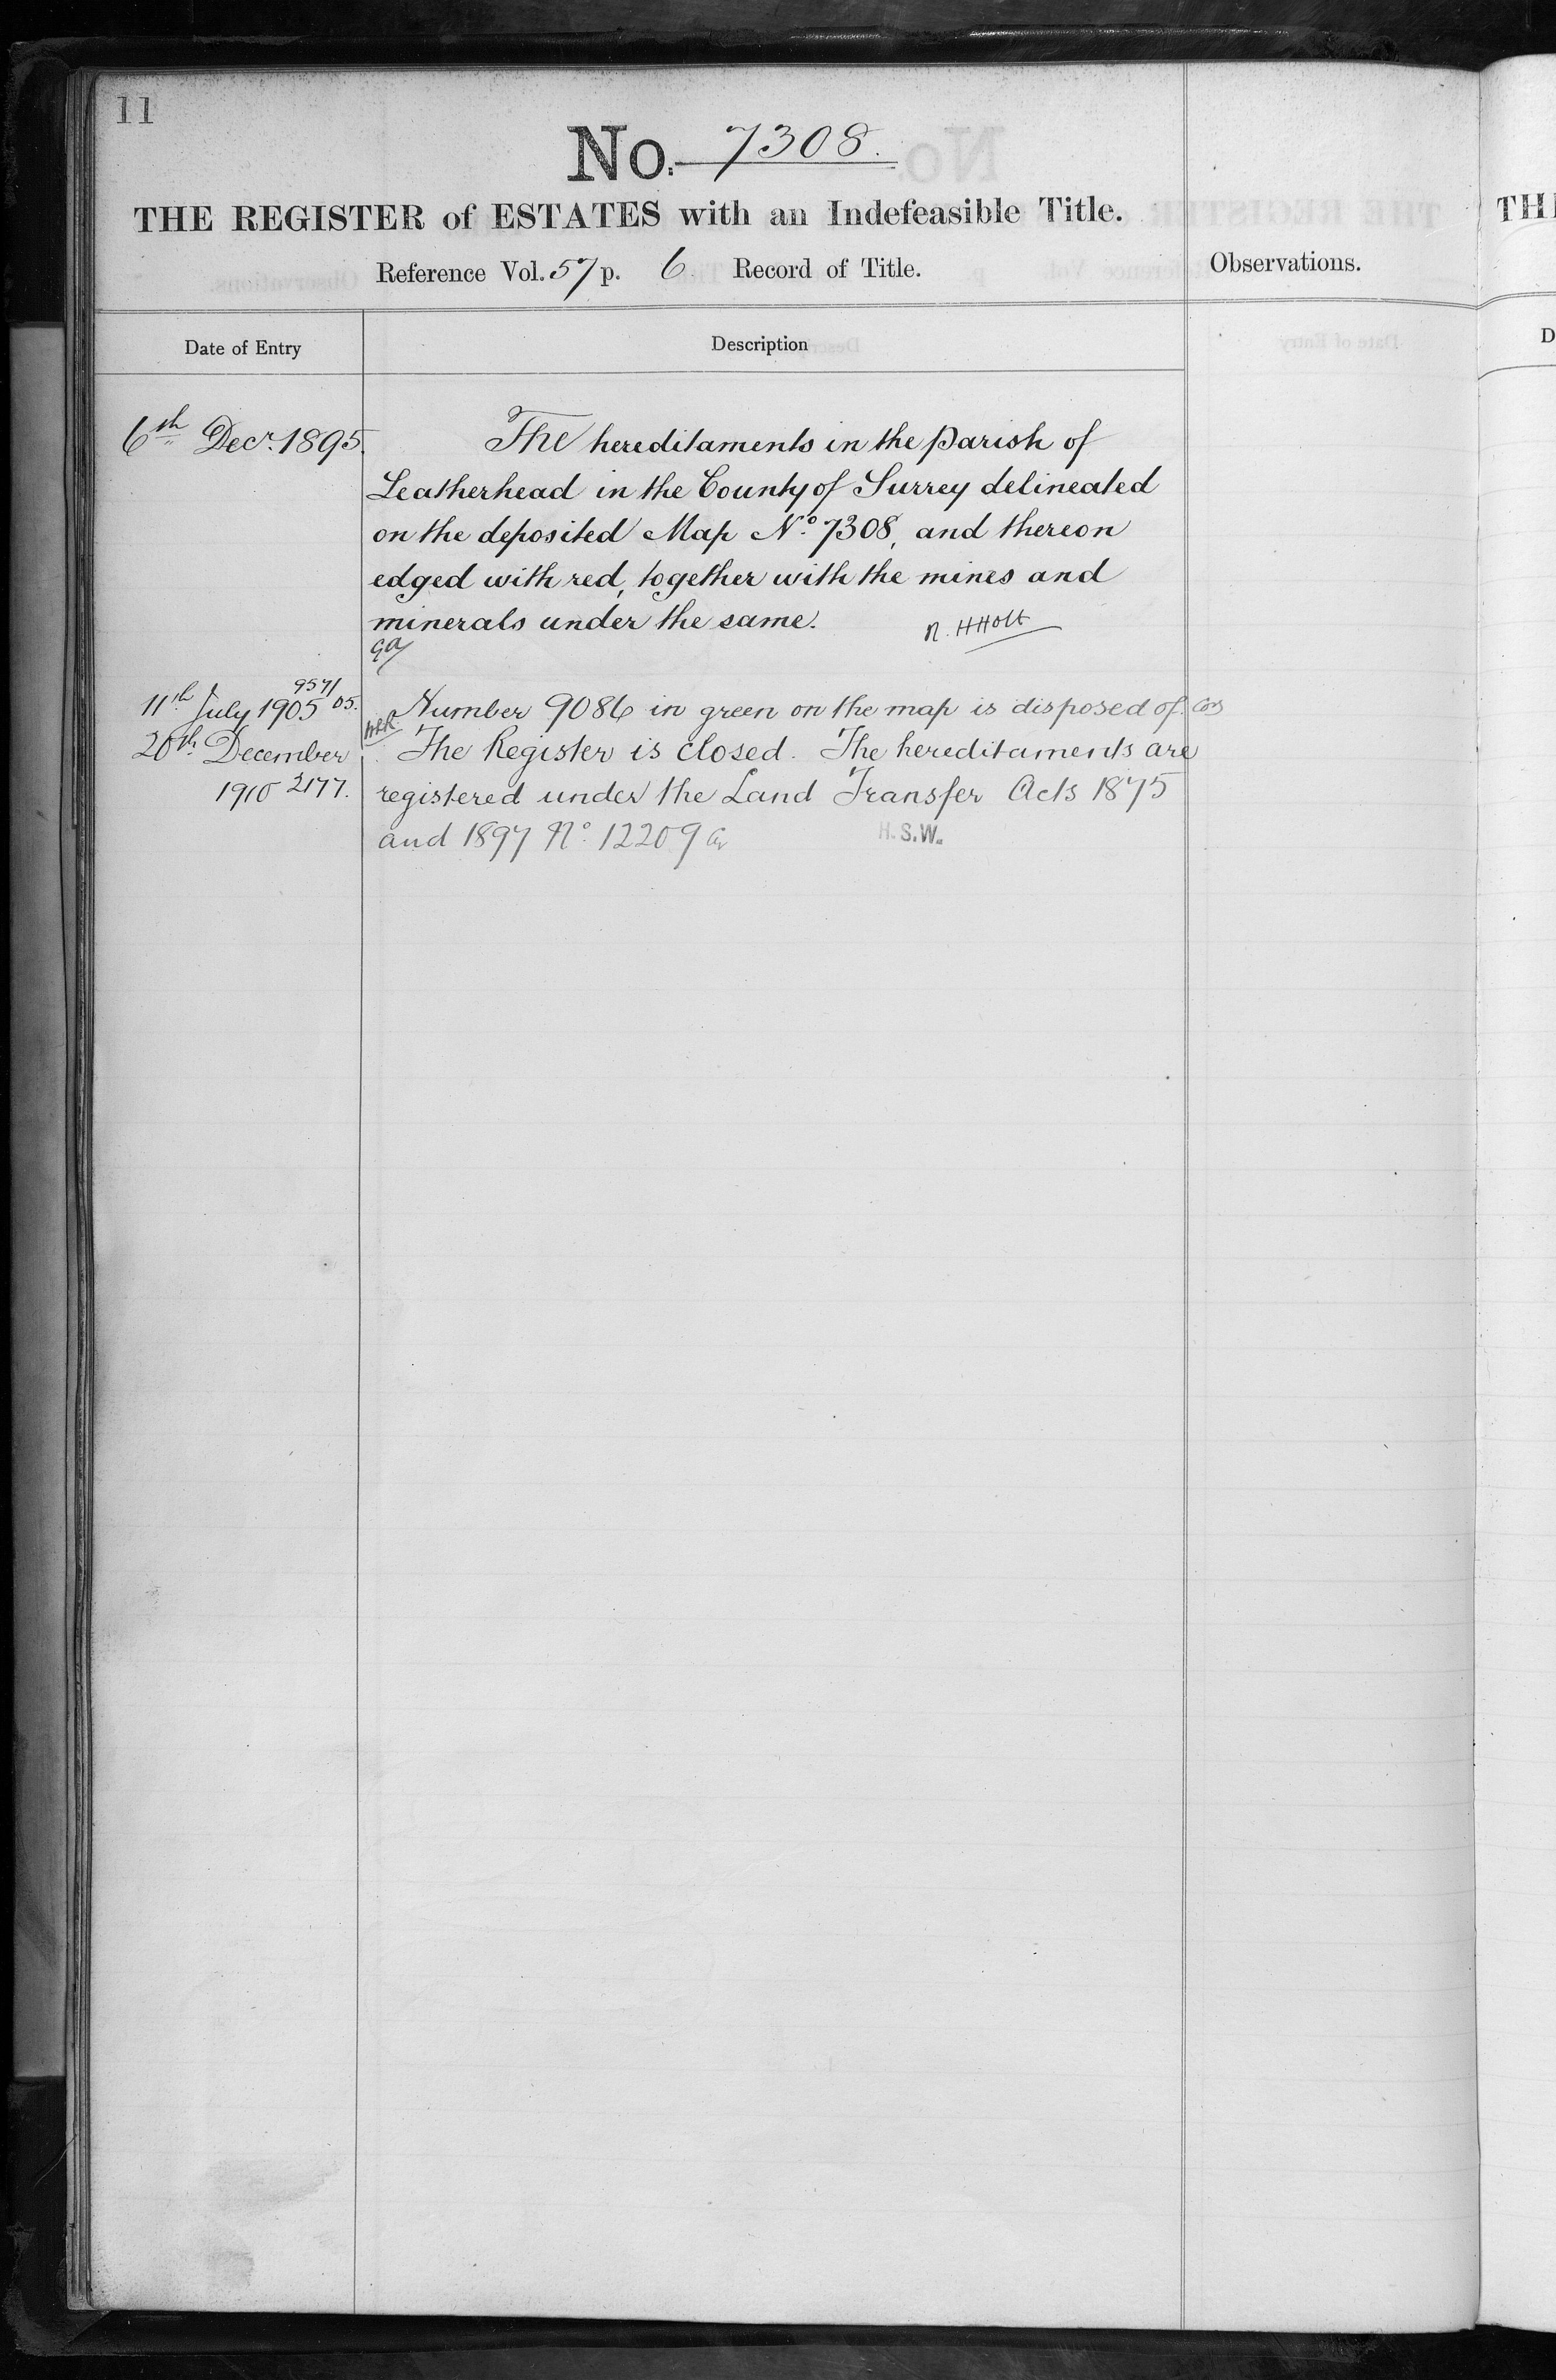 11
No. 7308.
THE REGISTER of ESTATES with an Indefeasible Title.
Reference Vol. 57 p. 6 Record of Title.
Observations.
TH
Date of Entry
Description
D
6th Decr. 1895.
The hereditaments in the Parish of
Leatherhead in the County of Surrey delineated
on the deposited Map No. 7308, and thereon
edged with red, together with the mines and
minerals under the same.
R. H Holt
9571
11th July 1905 05.
Number 9086 in green on the map is disposed of.
20th December
The Register is closed. The hereditaments are
1910 2177.
registered under the Land Transfer Acts 1875
and 1897 No. 12209
H.S.W.